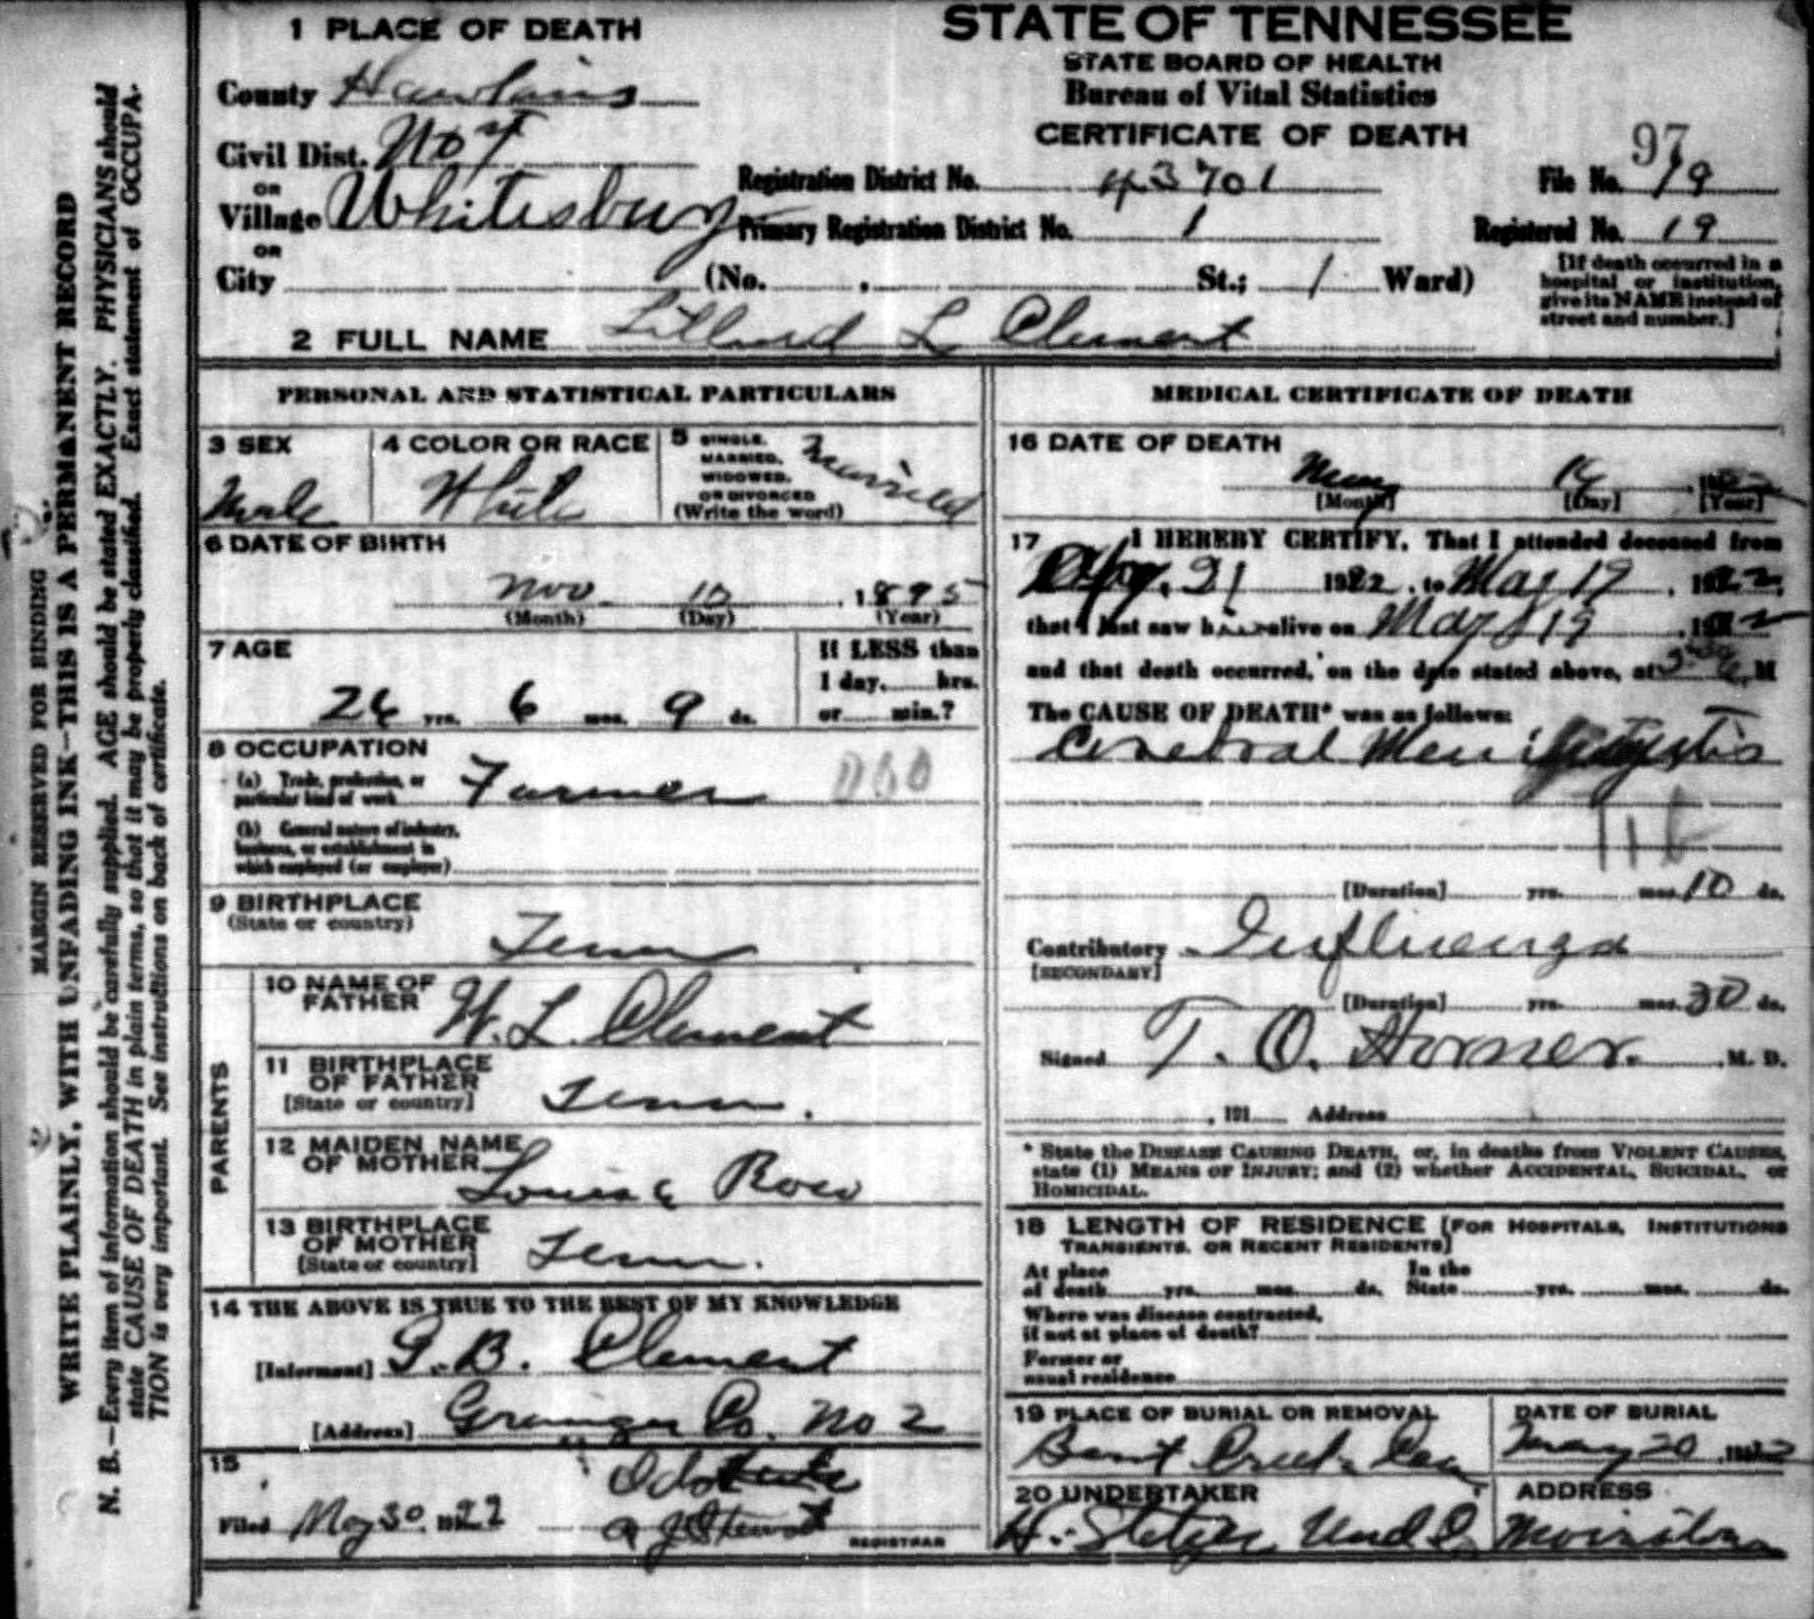 1 PLACE OF DEATH
STATE OF TENNESSEE
STATE BOARD OF HEALTH
Bureau of Vital Statistics
CERTIFICATE OF DEATH
County
Civil Dist. No 4
OR
Village Whitesburg
OR
City (No. , St.; 1 Ward)
Registration District No. 43701
Primary Registration District No. 1
97
File No. 19
Registered No. 19
[If death occurred in a
hospital or institution,
give its NAME instead of
street and number.]
2 FULL NAME Lillard L Clement
PERSONAL AND STATISTICAL PARTICULARS
3 SEX
Male
4 COLOR OR RACE
White
5 SINGLE,
MARRIED,
WIDOWED,
OR DIVORCED
(Write the word)
Married
6 DATE OF BIRTH
Nov 10, 1895
(Month) (Day) (Year)
7 AGE
26 yrs. 6 mos. 9 ds.
If LESS than
1 day, hrs.
or min.?
8 OCCUPATION
(a) Trade, profession, or
particular kind of work Farmer 000
(b) General nature of industry,
business, or establishment in
which employed (or employer)
9 BIRTHPLACE
(State or country)
Tenn
PARENTS
10 NAME OF
FATHER W. L. Clement
11 BIRTHPLACE
OF FATHER
[State or country] Tenn.
12 MAIDEN NAME
OF MOTHER
Row
13 BIRTHPLACE
OF MOTHER
[State or country] Tenn.
14 THE ABOVE IS TRUE TO THE BEST OF MY KNOWLEDGE
[Informant] G. B. Clement
[Address] Grainger Co. No 2
15
Filed May 30, 1922
REGISTRAR
MEDICAL CERTIFICATE OF DEATH
16 DATE OF DEATH
May
[Month] [Day] [Year]
17 I HEREBY CERTIFY, That I attended deceased from
21 1922, to May 19, 1922,
that I last saw h alive on May 19, 1922
and that death occurred, on the date stated above, at M
The CAUSE OF DEATH* was as follows:
Cerebral Meningitis
[Duration] yrs. mos. 10 ds.
Contributory Influenza
[SECONDARY]
[Duration] yrs. mos. 30 ds.
Signed T. O. Horner. M. D.
, 191 Address
* State the DISEASE CAUSING DEATH, or, in deaths from VIOLENT CAUSES,
state (1) MEANS OF INJURY; and (2) whether ACCIDENTAL, SUICIDAL, or
HOMICIDAL.
18 LENGTH OF RESIDENCE [FOR HOSPITALS, INSTITUTIONS
TRANSIENTS, OR RECENT RESIDENTS]
At place
of death yrs. mos. ds.
In the
State yrs. mos. ds.
Where was disease contracted,
if not at place of death?
Former or
usual residence
19 PLACE OF BURIAL OR REMOVAL
Bent Creek Cem
DATE OF BURIAL
May 20, 1922
20 UNDERTAKER
ADDRESS
MARGIN RESERVED FOR BINDING
WRITE PLAINLY, WITH UNFADING INK—THIS IS A PERMANENT RECORD
N. B.—Every item of information should be carefully supplied. AGE should be stated EXACTLY. PHYSICIANS should
state CAUSE OF DEATH in plain terms, so that it may be properly classified. Exact statement of OCCUPA-
TION is very important. See instructions on back of certificate.